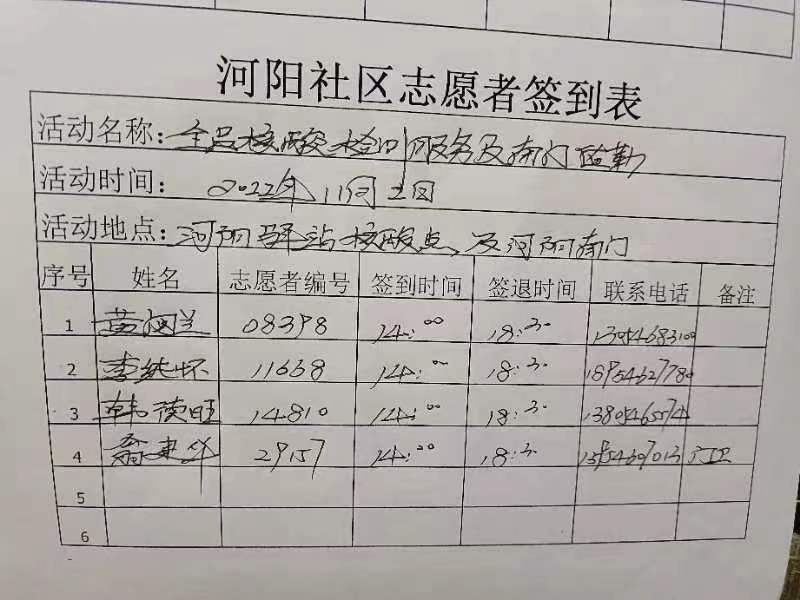 河阳社区志愿者签到表
活动名称：全员核酸检测服务及南门值勤
活动时间：2022年11月2日
活动地点：河阳驿站核酸点、及河阳南门
序号 姓名 志愿者编号 签到时间 签退时间 联系电话 备注
1 08398 14:00 18:30
2 11668 14:00 18:30
3 韩德旺 14810 14:00 18:30
4 29157 14:00 18:30 门卫
5
6